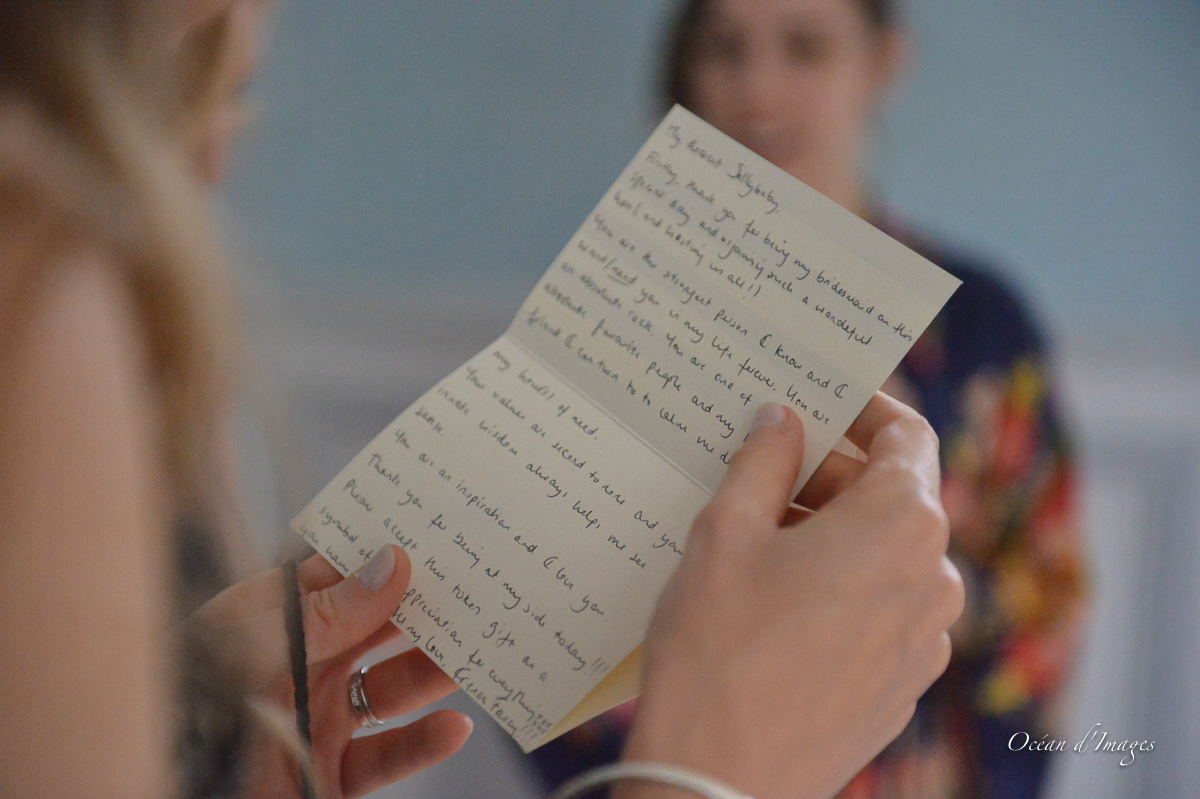 My dearest Jellybaby,
Firstly, thank you for being my bridesmaid on this
special day and organising such a wonderful
hen (and hosting us all!!)
You are the strongest person I know and I
want/need you in my life forever. You are
an absolute rock. You are one of my
absolute favourite people and my
friend I can turn to to calm me
my hour(s) of need.
Your values are second to none and your
innate wisdom always helps me see
sense.
You are an inspiration and I love you.
Thank you for being at my side today!!!
Please accept this token gift as a
symbol of appreciation for everything
you have
my love,
Océan d'Images